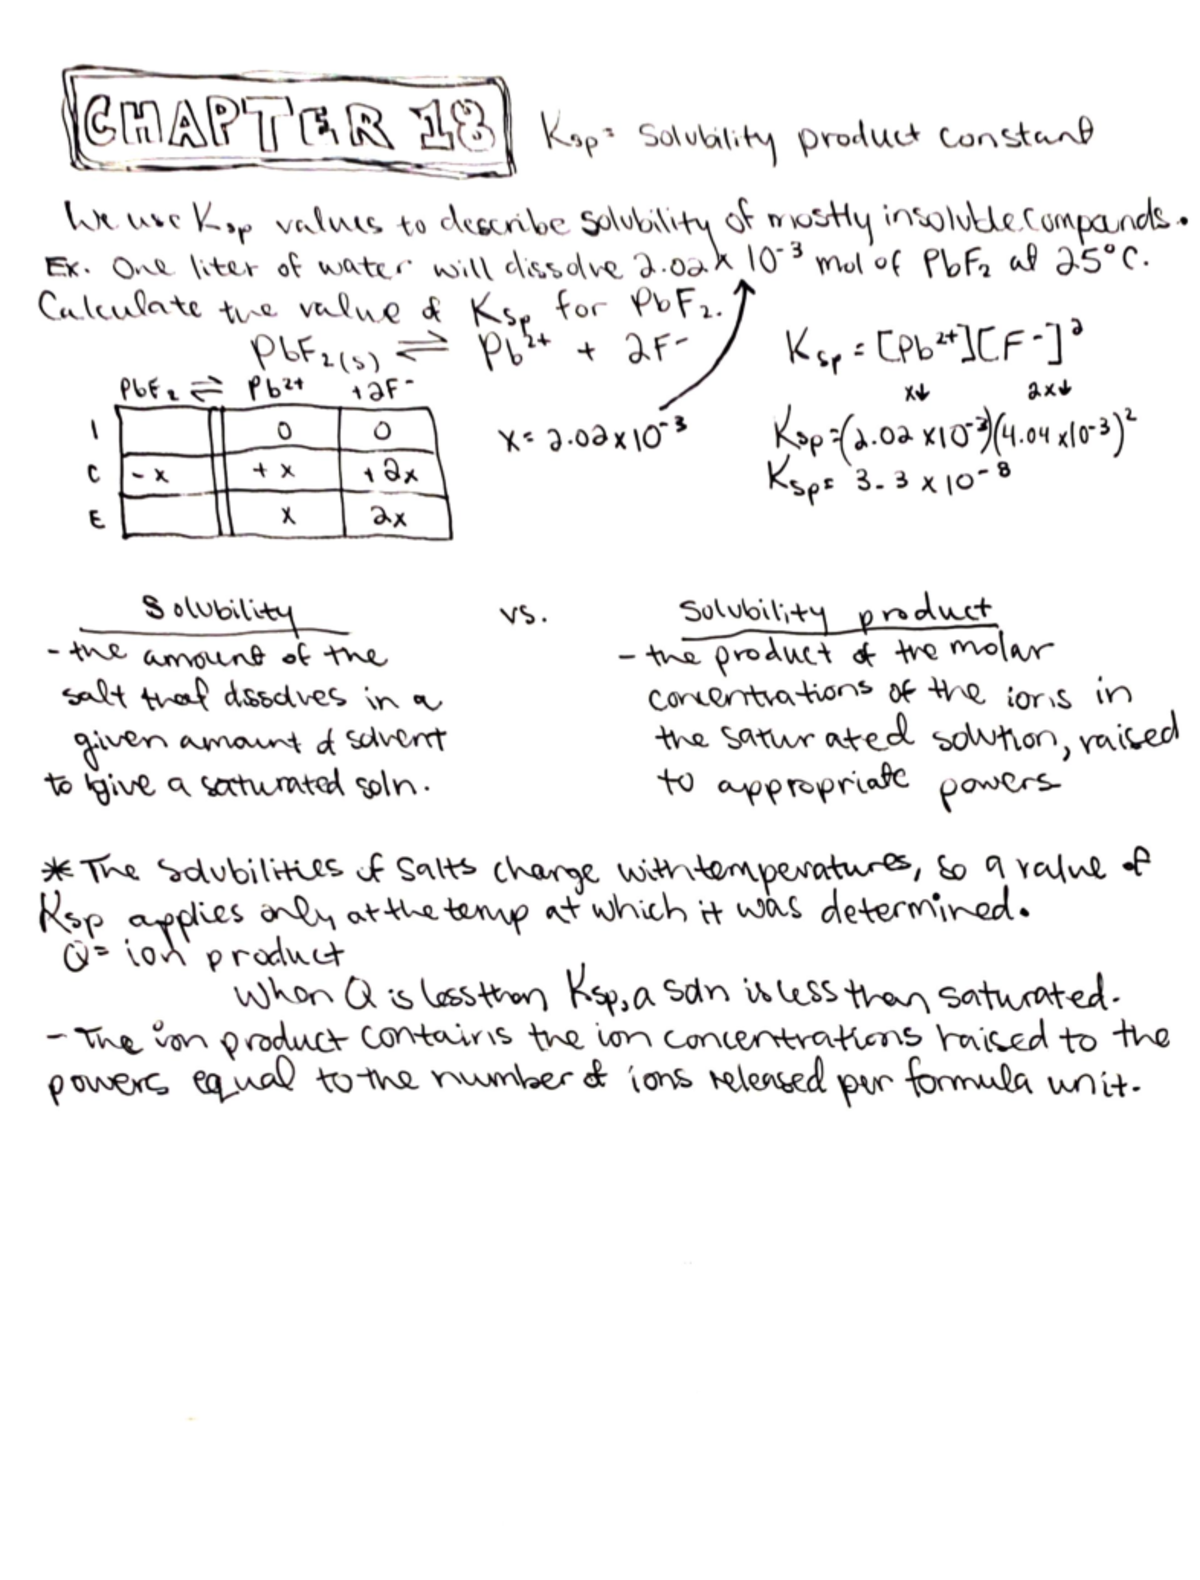 CHAPTER 18 Ksp = Solubility product constant
We use Ksp values to describe solubility of mostly insoluble compounds.
Ex. One liter of water will dissolve 2.02 x 10⁻³ mol of PbF₂ at 25°C.
Calculate the value of Ksp for PbF₂.
PbF₂(s) ⇌ Pb²⁺ + 2F⁻ Ksp = [Pb²⁺][F⁻]²
x↓ 2x↓
PbF₂ ⇌ Pb²⁺ +2F⁻
I 0 0
C -x +x +2x
E x 2x
x = 2.02 x 10⁻³
Ksp = (2.02 x 10⁻³)(4.04 x 10⁻³)²
Ksp = 3.3 x 10⁻⁸
Solubility vs. Solubility product
- the amount of the
salt that dissolves in a
given amount of solvent
to give a saturated soln.
- the product of the molar
concentrations of the ions in
the saturated solution, raised
to appropriate powers
* The solubilities of salts change with temperatures, so a value of
Ksp applies only at the temp at which it was determined.
Q = ion product
When Q is less than Ksp, a soln is less than saturated.
- The ion product contains the ion concentrations raised to the
powers equal to the number of ions released per formula unit.